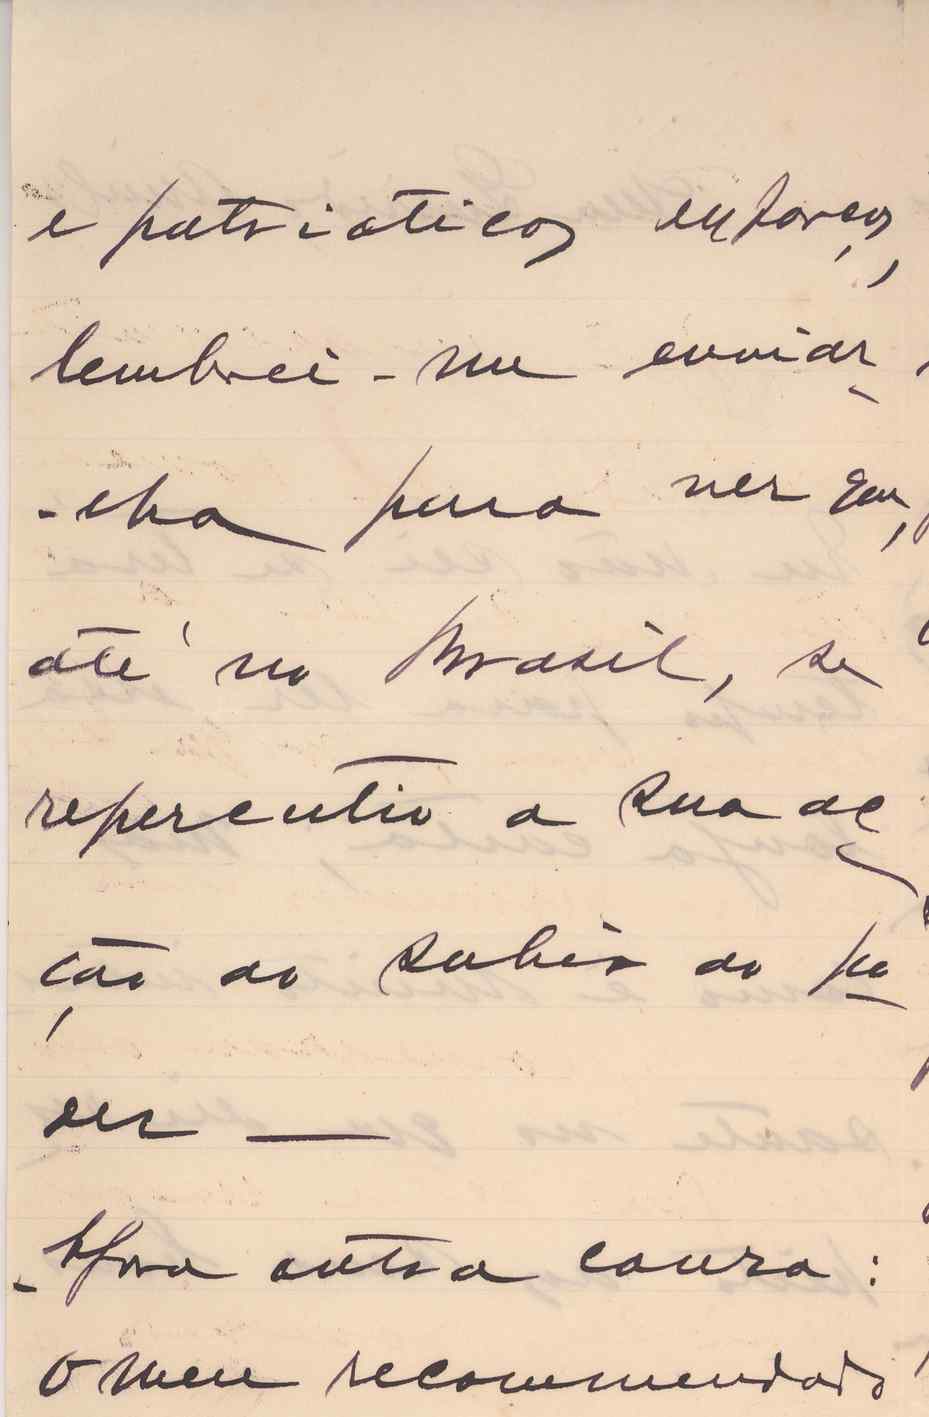 e patrioticos esforços,
lembrei-me enviar
-lha para ver que,
até no Brasil, se
repercutio a sua ac
ção ao subir ao po
der —
Agora outra cousa:
o meu recommendado